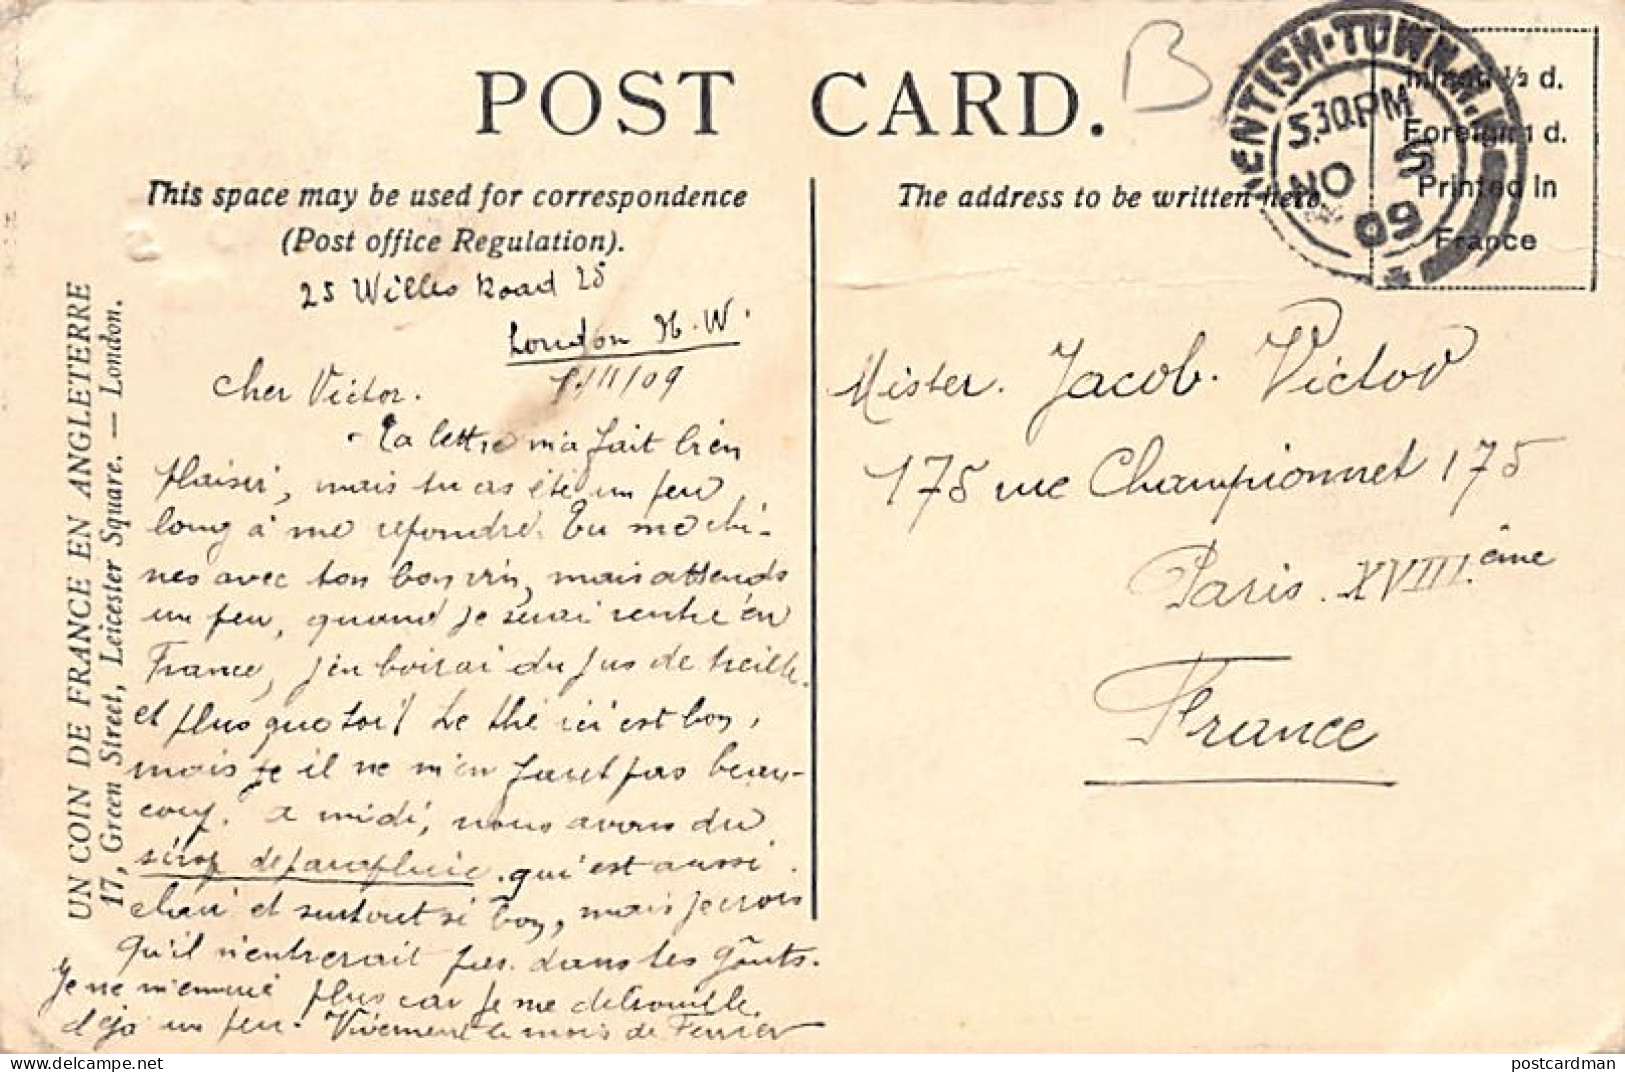 POST CARD.
B
KENTISH·TOWN.N.W.
5.30PM
NO 5
09
Inland ½ d.
Foreign 1 d.
Printed In
France
This space may be used for correspondence
(Post office Regulation).
The address to be written here.
UN COIN DE FRANCE EN ANGLETERRE
17, Green Street, Leicester Square. — London.
25 Willes Road 25
London N.W.
5/11/09
Cher Victor.
Ta lettre m'a fait bien
plaisir, mais tu as été un peu
long à me repondre. Tu me chi-
nes avec ton bon vin, mais attends
un peu, quand je serai rentré en
France, j'en boirai du jus de treille
et plus que toi! Le thé ici est bon,
mais je il ne m'en faut pas beau-
coup. A midi, nous avons du
sirop de parapluie qui est aussi
clair et surtout si bon, mais je crois
qu'il n'entrerait pas dans tes goûts.
Je ne m'ennuie plus car je me detrouille
déjà un peu. Vivement le mois de Fevrier
Mister. Jacob. Victor
175 rue Championnet 175
Paris. XVIII.ème
France
postcardman